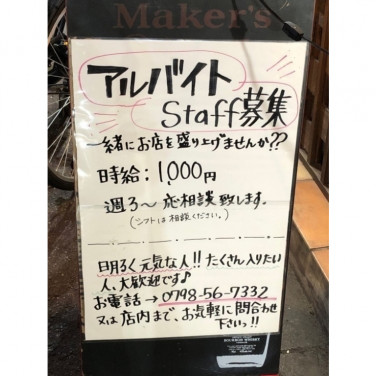 Maker's
アルバイト
Staff募集
一緒にお店を盛り上げませんか??
時給:1,000円
週3～応相談致します。
(シフトは相談ください。)
明るく元気な人!!たくさん入りたい
人、大歓迎です♪
お電話→0798-56-7332
又は店内まで、お気軽に問合わせ
下さいっ!!